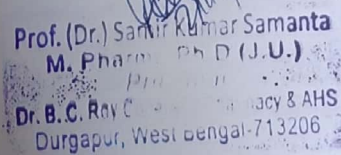 Prof. (Dr.) Samir Kumar Samanta
M. Pharm Ph D (J.U.)
Dr. B. C. Roy & AHS
Durgapur, West Bengal-713206